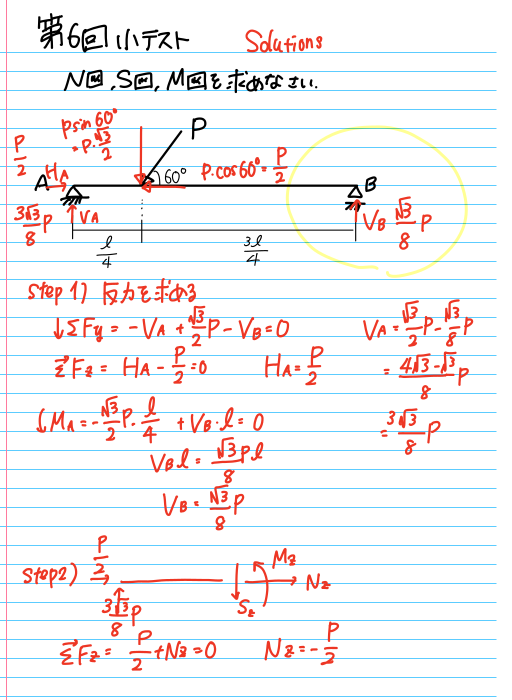 第6回 小テスト Solutions
N図, S図, M図を求めなさい.
Psin60°
= P·√3/2
P
P/2
H_A
A
60°
P·cos60° = P/2
B
3√3/8 P
V_A
V_B √3/8 P
l/4
3l/4
Step 1) 反力を求める
↓ΣFy = -V_A + √3/2 P - V_B = 0
V_A = √3/2 P - √3/8 P
→ΣFz = H_A - P/2 = 0
H_A = P/2
= 4√3-√3/8 P
↓M_A = -√3/2 P· l/4 + V_B·l = 0
= 3√3/8 P
V_B l = √3/8 P l
V_B = √3/8 P
Step2)
P/2
Mz
Nz
3√3/8 P
Sz
→ΣFz = P/2 + Nz = 0
Nz = -P/2